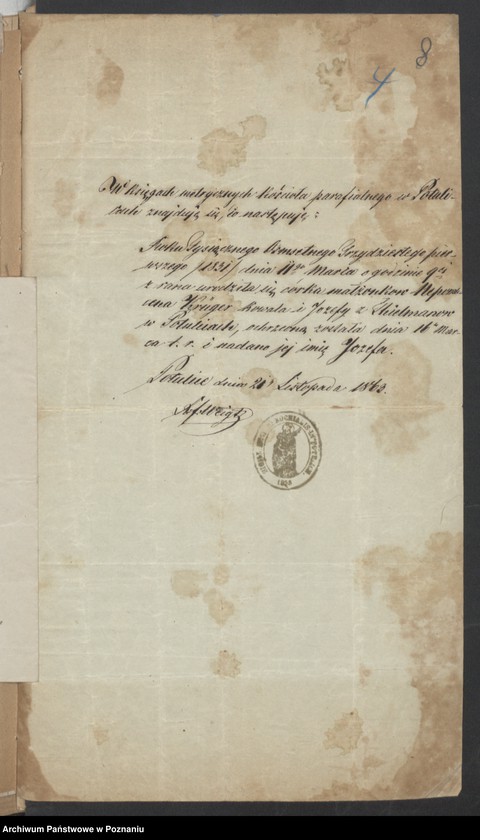 8
4
W Księgach metrycznych kościoła parafialnego w Potuli-
cach znajduje się, co następuje:
Roku Tysiącznego Ośmsetnego Trzydziestego pier-
wszego /1831/ dnia Marca o godzinie 9tej
z rana urodziła się córka małżonków Nepomu-
cena Krüger kowala i Jozefy z
w Potulicach, ochrzconą została dnia 16 Mar-
ca t. r. i nadano jej imię Jozefa.
Potulice dnia 20 Listopada 1863.
Archiwum Państwowe w Poznaniu